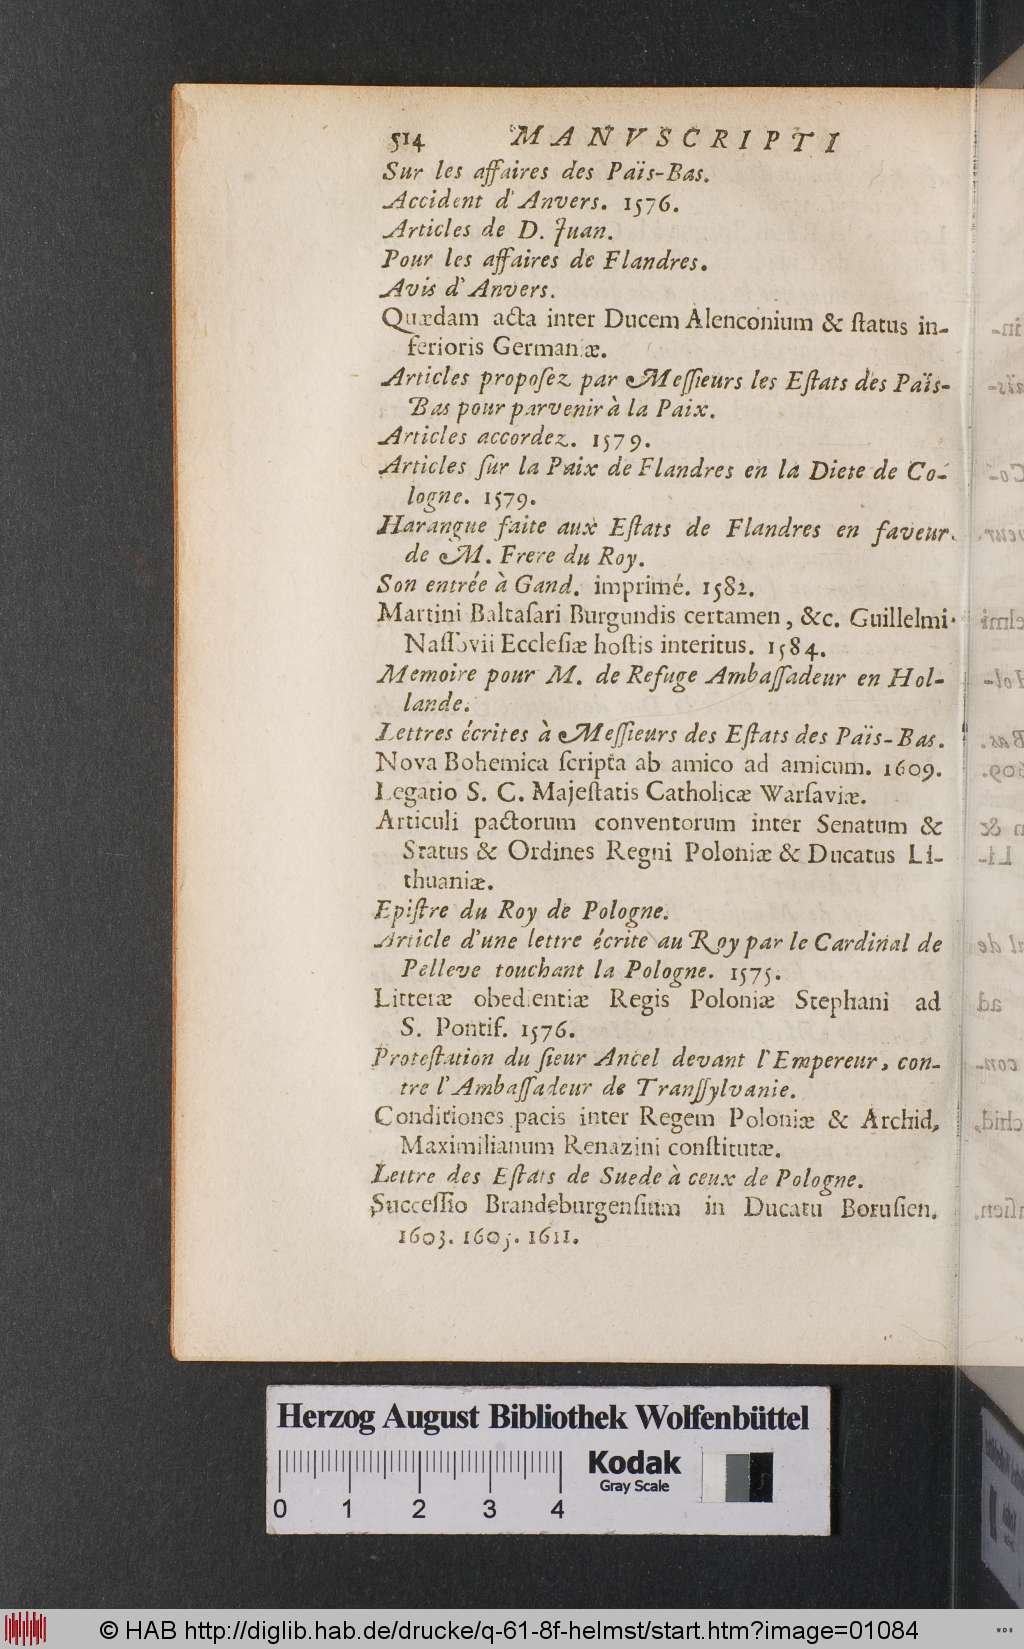 514 MANVSCRIPTI
Sur les affaires des Païs-Bas.
Accident d'Anvers. 1576.
Articles de D. Juan.
Pour les affaires de Flandres.
Avis d'Anvers.
Quædam acta inter Ducem Alenconium & ſtatus in-
ferioris Germaniæ.
Articles propoſez par Meſſieurs les Eſtats des Païs-
Bas pour parvenir à la Paix.
Articles accordez. 1579.
Articles ſur la Paix de Flandres en la Diete de Co-
logne. 1579.
Harangue faite aux Eſtats de Flandres en faveur
de M. Frere du Roy.
Son entrée à Gand. imprimé. 1582.
Martini Baltaſari Burgundis certamen, &c. Guillelmi
Naſſovii Eccleſiæ hoſtis interitus. 1584.
Memoire pour M. de Refuge Ambaſſadeur en Hol-
lande.
Lettres écrites à Meſſieurs des Eſtats des Païs-Bas.
Nova Bohemica ſcripta ab amico ad amicum. 1609.
Legatio S. C. Majeſtatis Catholicæ Warſaviæ.
Articuli pactorum conventorum inter Senatum &
Status & Ordines Regni Poloniæ & Ducatus Li-
thuaniæ.
Epiſtre du Roy de Pologne.
Article d'une lettre écrite au Roy par le Cardinal de
Pelleve touchant la Pologne. 1575.
Litteræ obedientiæ Regis Poloniæ Stephani ad
S. Pontif. 1576.
Proteſtation du ſieur Ancel devant l'Empereur, con-
tre l'Ambaſſadeur de Tranſſylvanie.
Conditiones pacis inter Regem Poloniæ & Archid,
Maximilianum Renazini conſtitutæ.
Lettre des Eſtats de Suede à ceux de Pologne.
Succeſſio Brandeburgenſium in Ducatu Boruſien.
1603. 1605. 1611.
Herzog August Bibliothek Wolfenbüttel
Kodak
Gray Scale
0 1 2 3 4
© HAB http://diglib.hab.de/drucke/q-61-8f-helmst/start.htm?image=01084